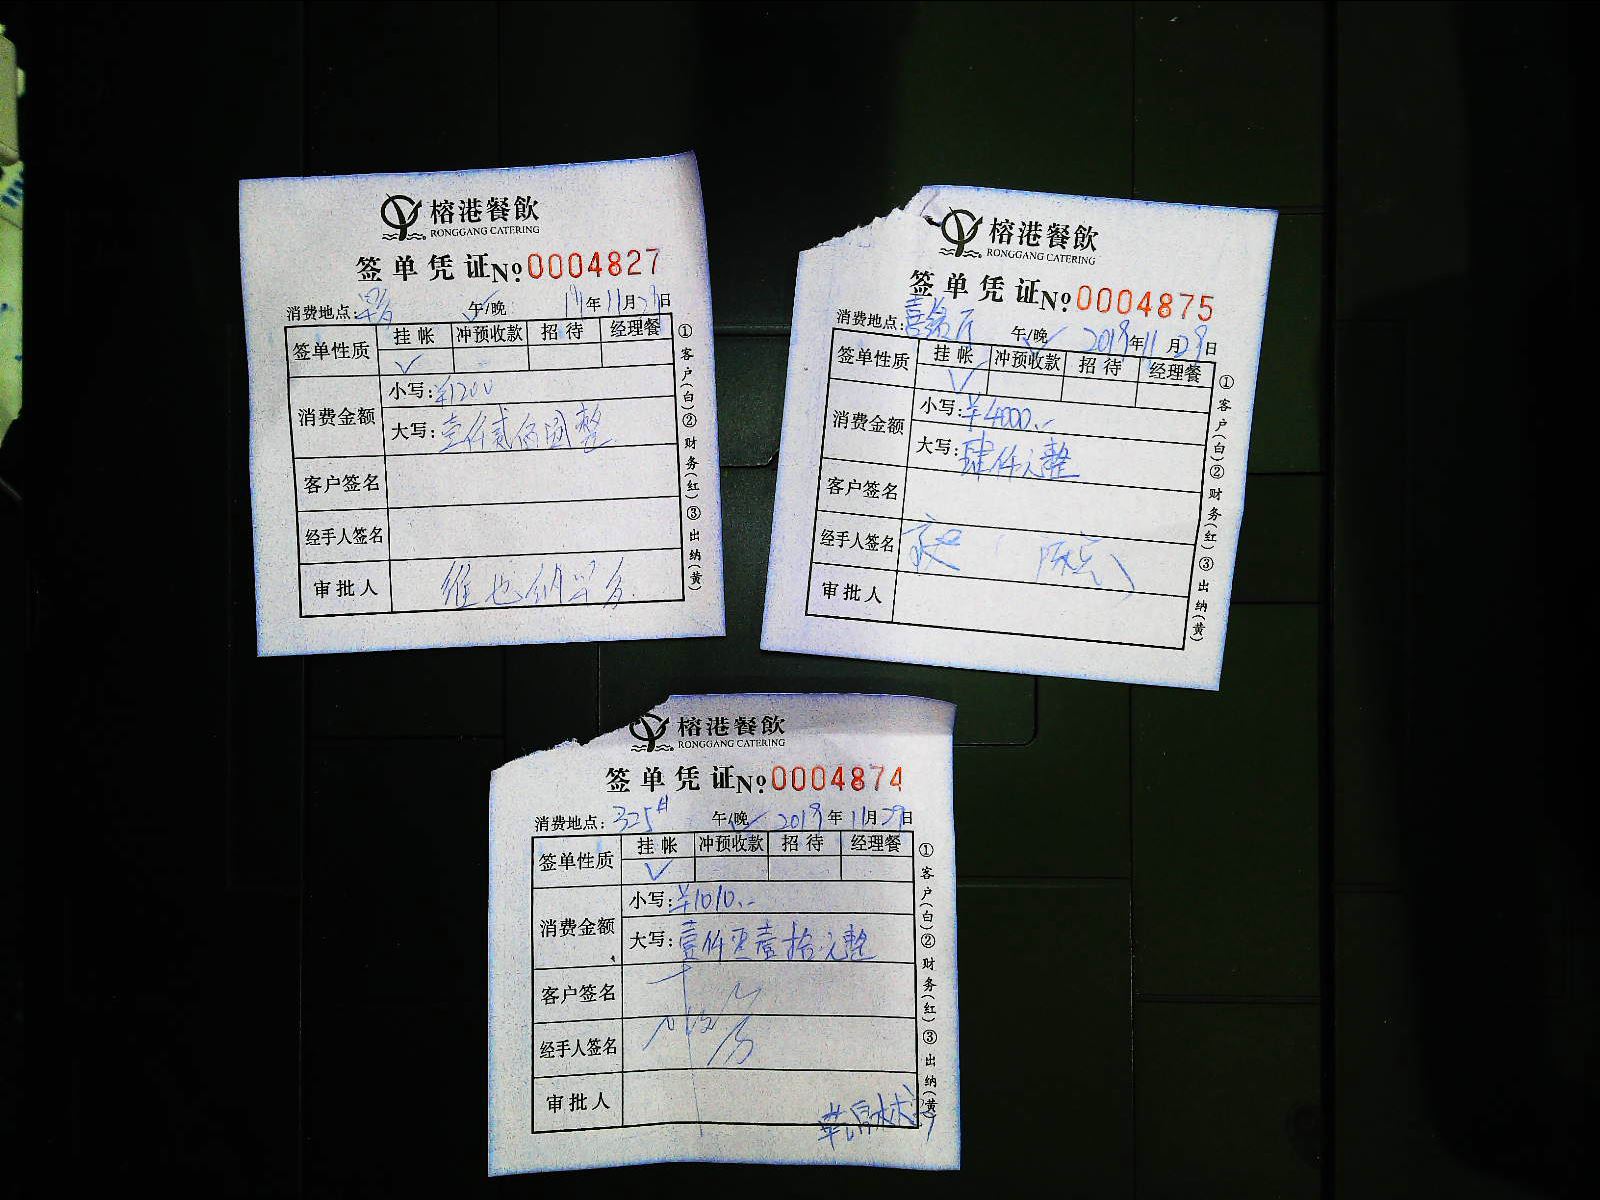 榕港餐飲
RONGGANG CATERING
签单凭证 № 0004827
消费地点: 午/晚 19年11月29日
签单性质 挂帐 冲预收款 招待 经理餐
✓
消费金额 小写: ¥1200
大写: 壹仟贰佰圆整
客户签名
经手人签名
审批人 维也纳
①客户(白)②财务(红)③出纳(黄)
榕港餐飲
RONGGANG CATERING
签单凭证 № 0004875
消费地点: 午/晚 2019年11月29日
签单性质 挂帐 冲预收款 招待 经理餐
✓
消费金额 小写: ¥4000.-
大写: 肆仟元整
客户签名
经手人签名
审批人
①客户(白)②财务(红)③出纳(黄)
榕港餐飲
RONGGANG CATERING
签单凭证 № 0004874
消费地点: 325# 午/晚 2019年11月29日
签单性质 挂帐 冲预收款 招待 经理餐
✓
消费金额 小写: ¥1010.-
大写: 壹仟零壹拾元整
客户签名
经手人签名
审批人
①客户(白)②财务(红)③出纳(黄)